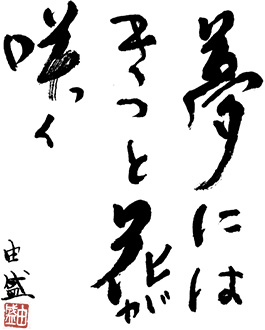 夢には
きっと花が
咲く
由盛
由盛